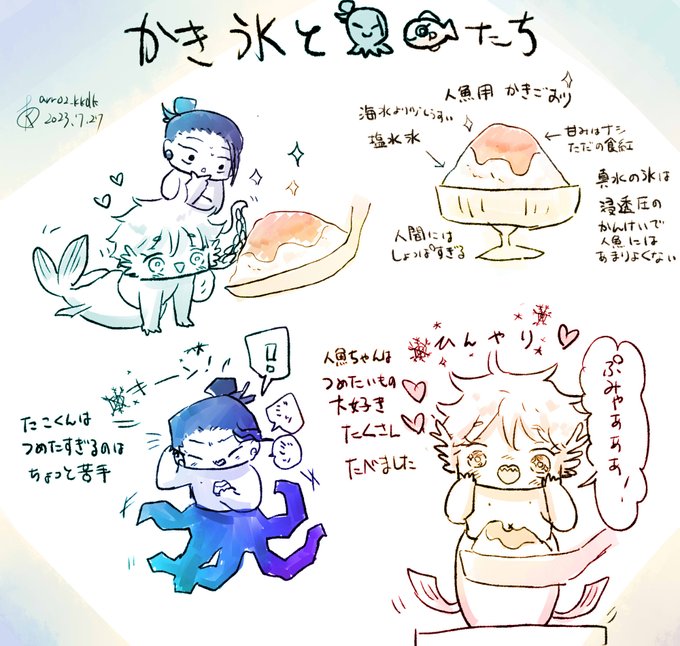 かき氷と たち
arroz_kkdk
2023.7.27
人魚用 かきごおり
海水よりからうすい
塩水氷
甘みはナシ
ただの食紅
真水の氷は
浸透圧の
かんけいで
人魚には
あまりよくない
人間には
しょっぱすぎる
キーン!
!!
たこくんは
つめたすぎるのは
ちょっと苦手
ひんやり
人魚ちゃんは
つめたいもの
大好き
たくさん
たべました
ぷみゃぁぁぁ!